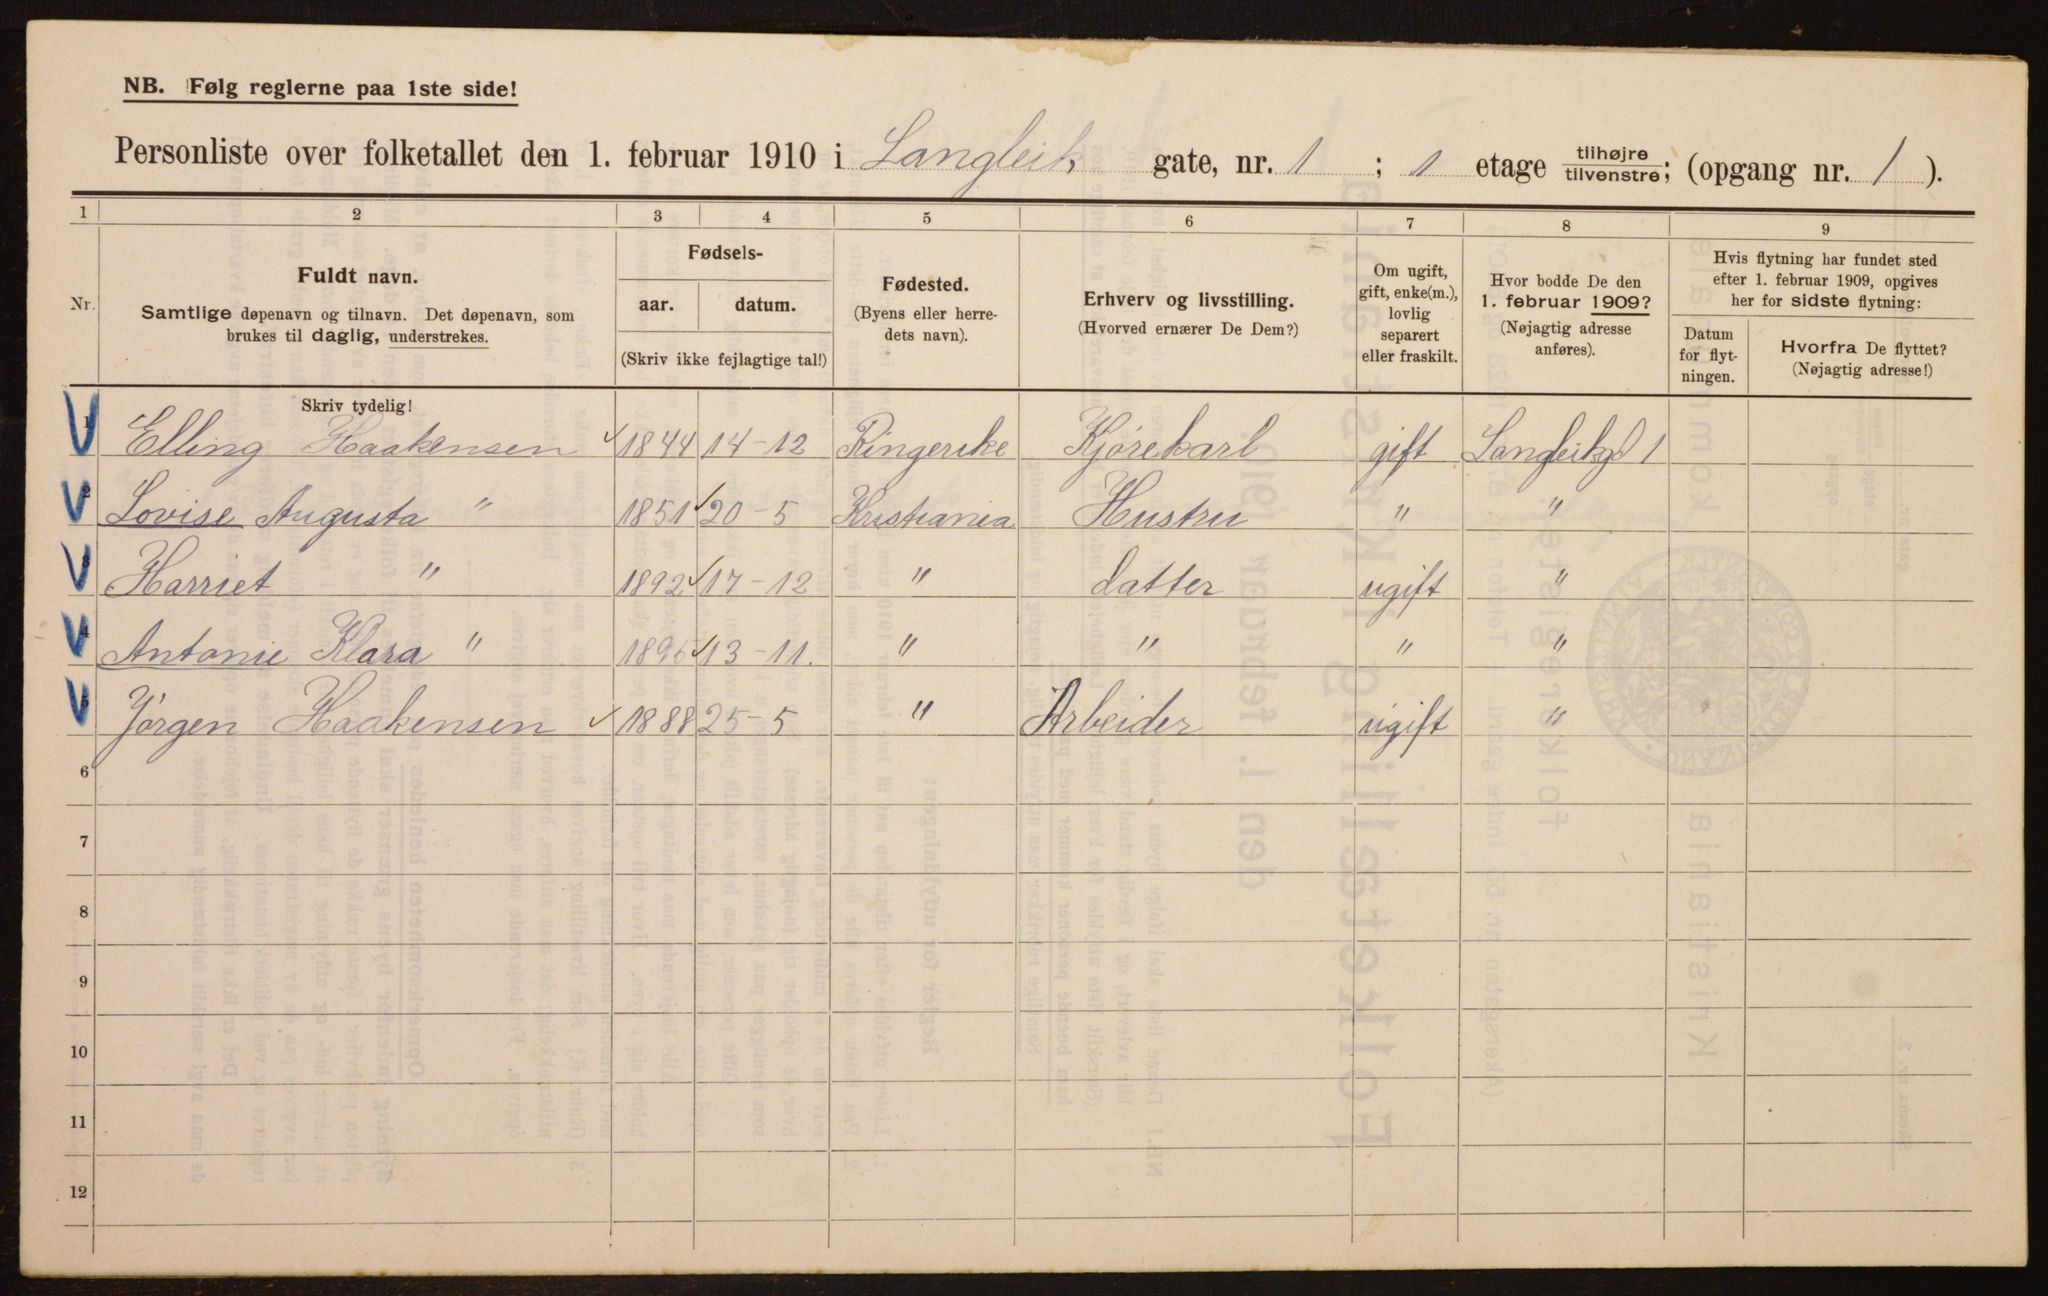 NB. Følg reglerne paa 1ste side!
Personliste over folketallet den 1. februar 1910 i Langleik gate, nr. 1 ; 1 etage tilhøjre/tilvenstre; (opgang nr. 1 ).
1 2 3 4 5 6 7 8 9
Nr.
Fuldt navn.
Samtlige døpenavn og tilnavn. Det døpenavn, som
brukes til daglig, understrekes.
Skriv tydelig!
Fødsels-
aar. datum.
(Skriv ikke fejlagtige tal!)
Fødested.
(Byens eller herre-
dets navn).
Erhverv og livsstilling.
(Hvorved ernærer De Dem?)
Om ugift,
gift, enke(m.),
lovlig
separert
eller fraskilt.
Hvor bodde De den
1. februar 1909?
(Nøjagtig adresse
anføres).
Hvis flytning har fundet sted
efter 1. februar 1909, opgives
her for sidste flytning:
Datum
for flyt-
ningen.
Hvorfra De flyttet?
(Nøjagtig adresse!)
1 Elling Haakensen 1844 14-12 Ringerike Kjørekarl gift Langleikgd 1
2 Lovise Augusta " 1851 20-5 Kristiania Hustru " "
3 Harriet " 1892 17-12 " datter ugift "
4 Antonie Klara " 13-11. " " " "
5 Jørgen Haakensen 1888 25-5 " Arbeider ugift "
6
7
8
9
10
11
12